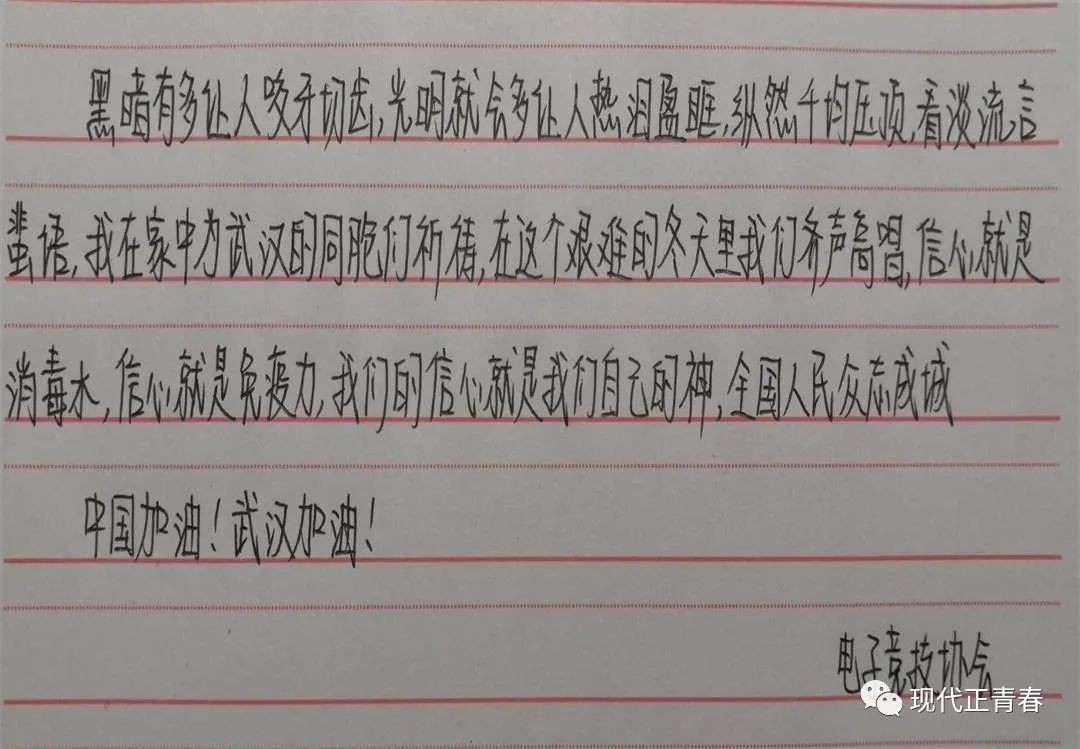 黑暗有多让人咬牙切齿,光明就会多让人热泪盈眶,纵然千均压顶,看淡流言
蜚语,我在家中为武汉的同胞们祈祷,在这个艰难的冬天里我们齐声高唱,信心就是
消毒水,信心就是免疫力,我们的信心就是我们自己的神,全国人民众志成城
中国加油!武汉加油!
电子竞技协会
现代正青春